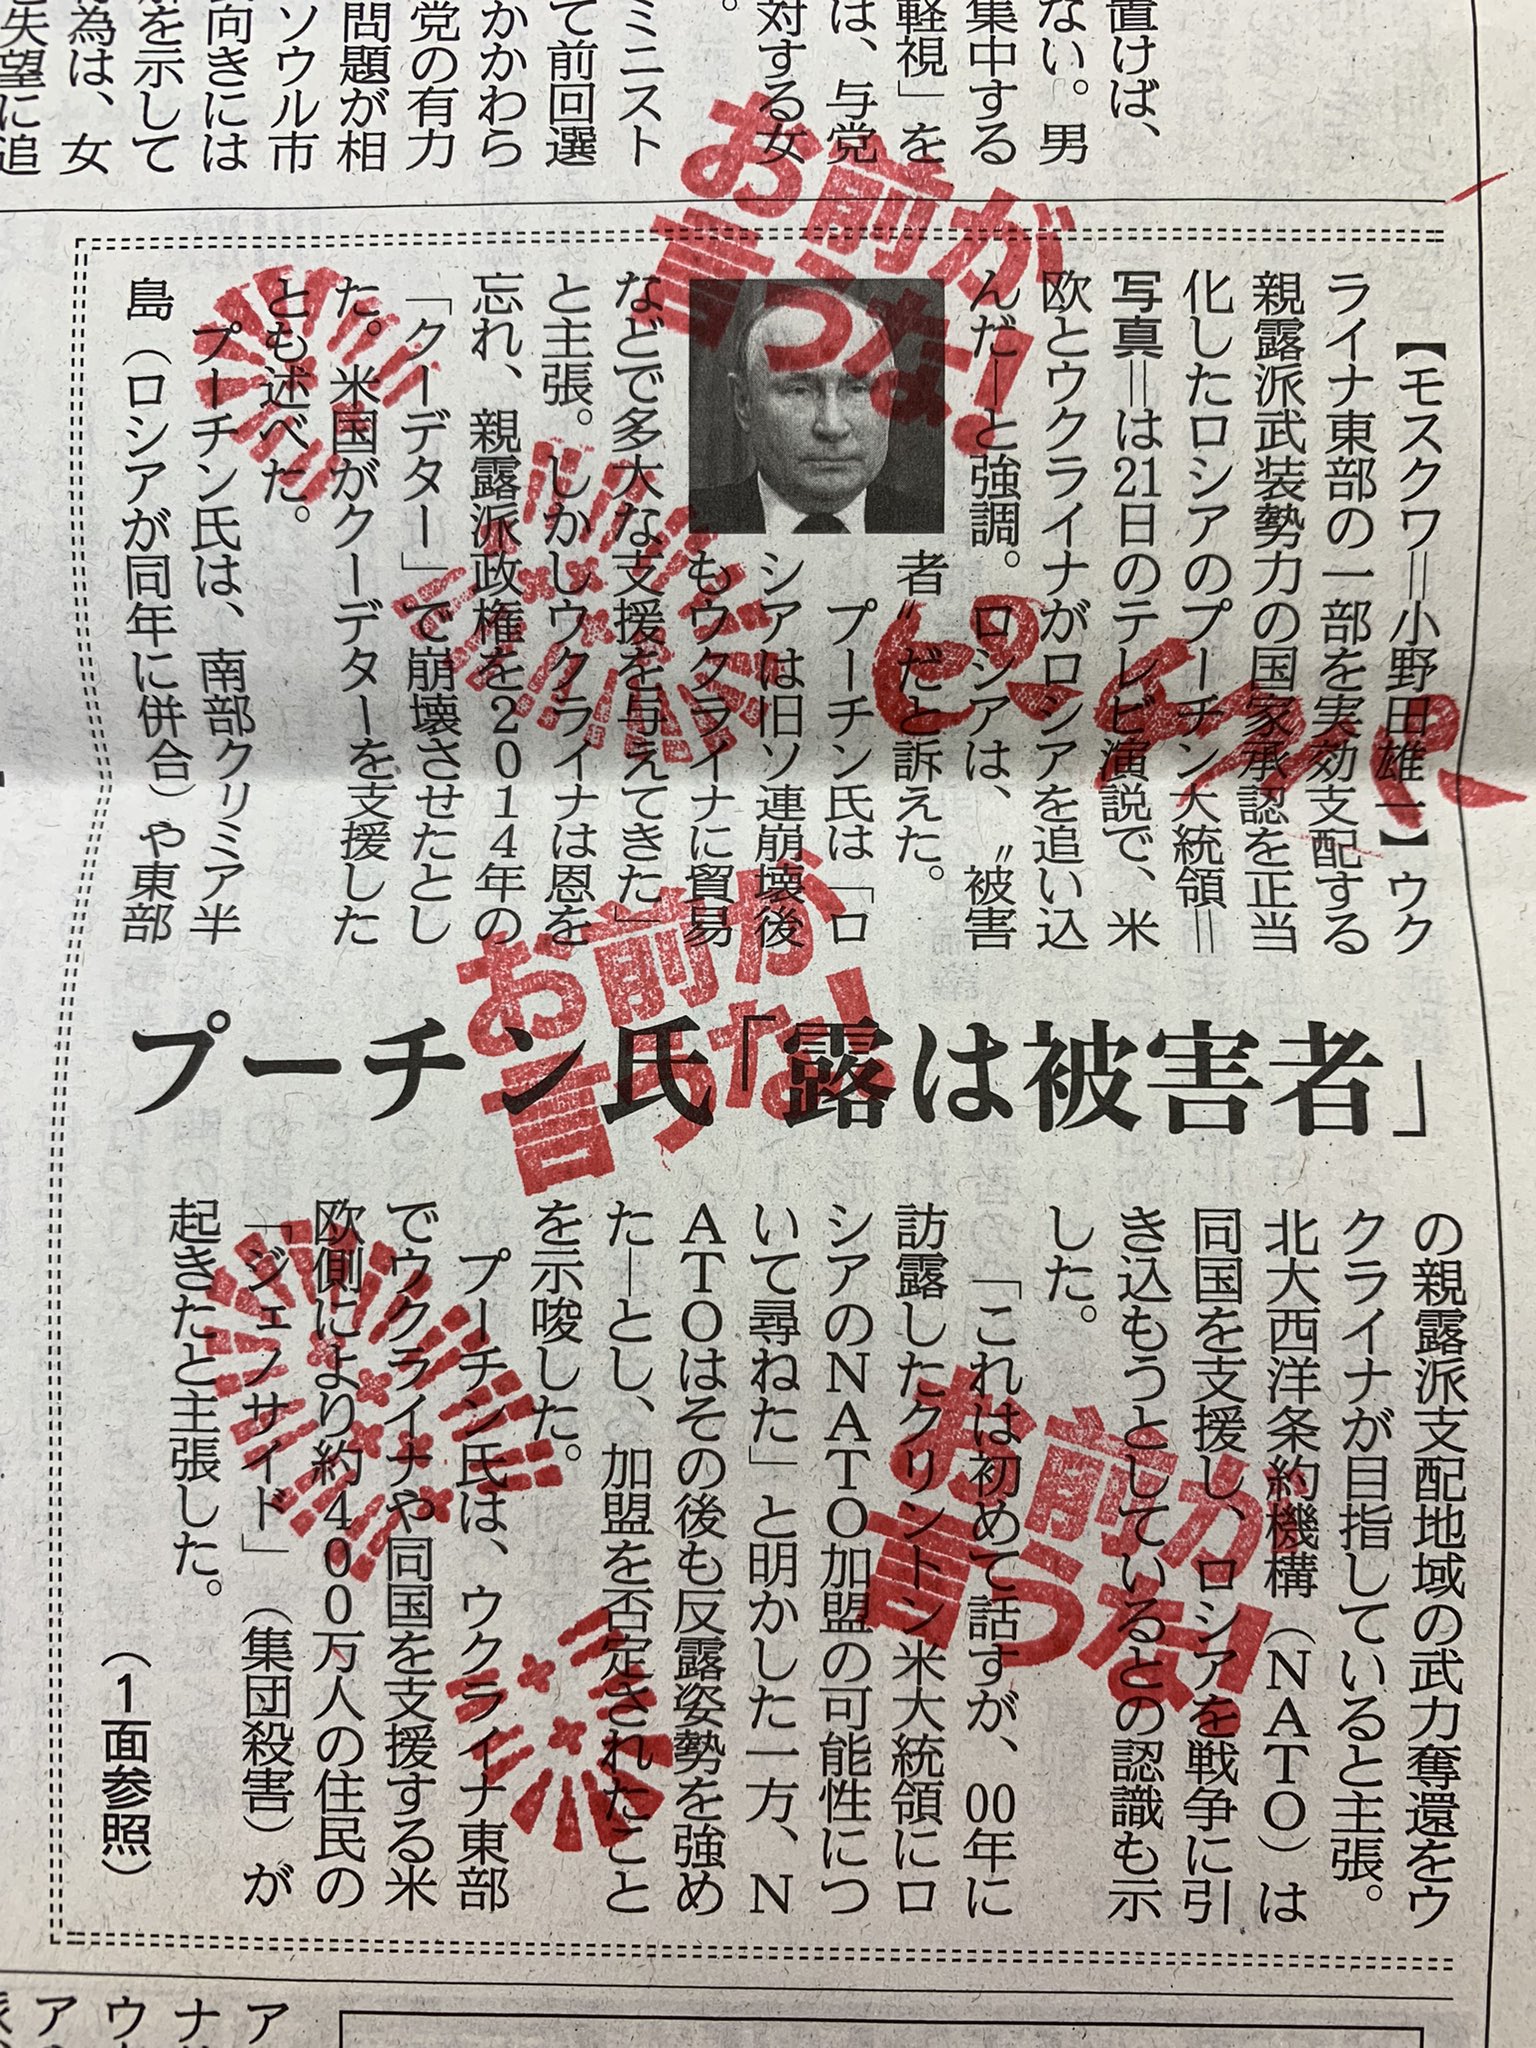 置けば、
ない。男
集中する
軽視」を
は、与党
対する女
ミニスト
て前回選
かかわら
党の有力
問題が相
ソウル市
向きには
を示して
為は、女
失望に追
プーチン氏「露は被害者」
【モスクワ＝小野田雄一】ウク
ライナ東部の一部を実効支配する
親露派武装勢力の国家承認を正当
化したロシアのプーチン大統領＝
写真＝は21日のテレビ演説で、米
欧とウクライナがロシアを追い込
んだ―と強調。ロシアは、〝被害
者〟だと訴えた。
プーチン氏は「ロ
シアは旧ソ連崩壊後
もウクライナに貿易
などで多大な支援を与えてきた」
と主張。しかしウクライナは恩を
忘れ、親露派政権を２０１４年の
「クーデター」で崩壊させたとし
た。米国がクーデターを支援した
とも述べた。
プーチン氏は、南部クリミア半
島（ロシアが同年に併合）や東部
の親露派支配地域の武力奪還をウ
クライナが目指していると主張。
北大西洋条約機構（ＮＡＴＯ）は
同国を支援し、ロシアを戦争に引
き込もうとしているとの認識も示
した。
「これは初めて話すが、00年に
訪露したクリントン米大統領にロ
シアのＮＡＴＯ加盟の可能性につ
いて尋ねた」と明かした一方、Ｎ
ＡＴＯはその後も反露姿勢を強め
た―とし、加盟を否定されたこと
を示唆した。
プーチン氏は、ウクライナ東部
でウクライナや同国を支援する米
欧側により約４００万人の住民の
「ジェノサイド」（集団殺害）が
起きたと主張した。
（１面参照）
お前が
言うな!
お前が
言うな!
お前が
言うな!
ア
ナ
ウ
ア